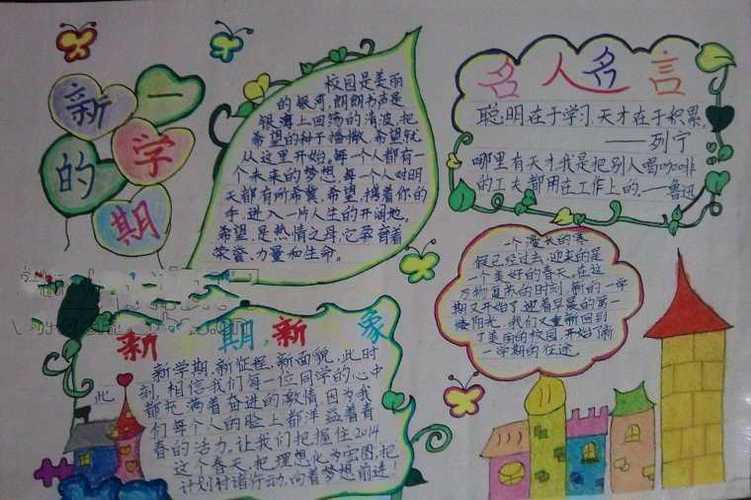 新的
一学期
校园是美丽
的银河,朗朗书声是
银海上回荡的清波,把
希望的种子播撒,希望就
从这里开始。每一个人都有一
个未来的梦想,每一个人对明
天都有所希冀,希望,携着你的
手,进入一片人生的开阔地。
希望,是热情之母,它孕育着
荣誉、力量和生命。
名人名言
聪明在于学习,天才在于积累。
——列宁
哪里有天才,我是把别人喝咖啡
的工夫都用在工作上的。—鲁迅
一个漫长的寒
假已经过去,迎来的是
一个美好的春天,在这
万物复苏的时刻,新的一学
期又开始了,迎着早晨的第一
缕阳光,我们又重新回到
了美丽的校园,开始了新
一学期的征途。
新 期,新 象
新学期,新征程,新面貌,此时
此刻,相信我们每一位同学的心中
都充满着奋进的激情,因为我
们每个人的脸上都洋溢着青
春的活力。让我们把握住2014
这个春天,把理想化为宏图,把
计划付诸行动,向着梦想前进!